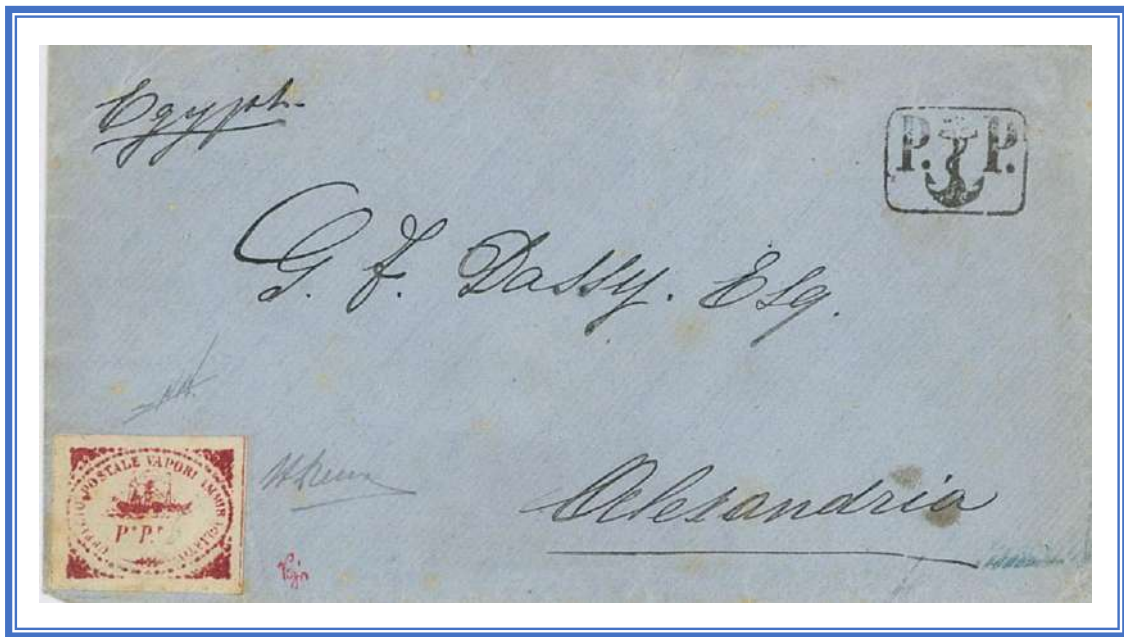 Egypt.
P. P.
G. F. Dassy. Esq.
Alexandria
POSTALE VAPORI
P. P.